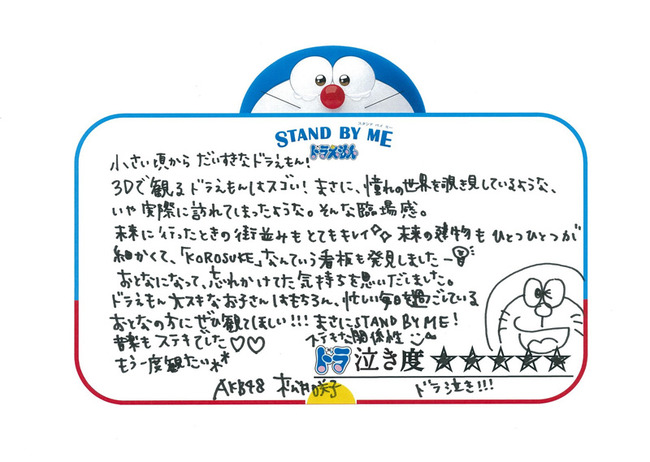 スタンド バイ ミー
STAND BY ME
ドラえもん
小さい頃から だいすきなドラえもん!
3Dで観るドラえもんはスゴい! まさに、憧れの世界を覗き見しているような、
いや実際に訪れてしまったような。そんな臨場感。
未来に行ったときの街並みもとてもキレイ 未来の建物もひとつひとつが
細かくて、「KOROSUKE」なんていう看板も発見しましたー
おとなになって、忘れかけてた気持ちを思いだしました。
ドラえもん大スキなお子さんはもちろん、忙しい毎日を過ごしている
おとなの方にぜひ観てほしい!!! まさにSTAND BY ME!
ステキな関係性
音楽もステキでした♡♡
もう一度観たいな
ドラ泣き度 ★★★★★
AKB48
ドラ泣き!!!